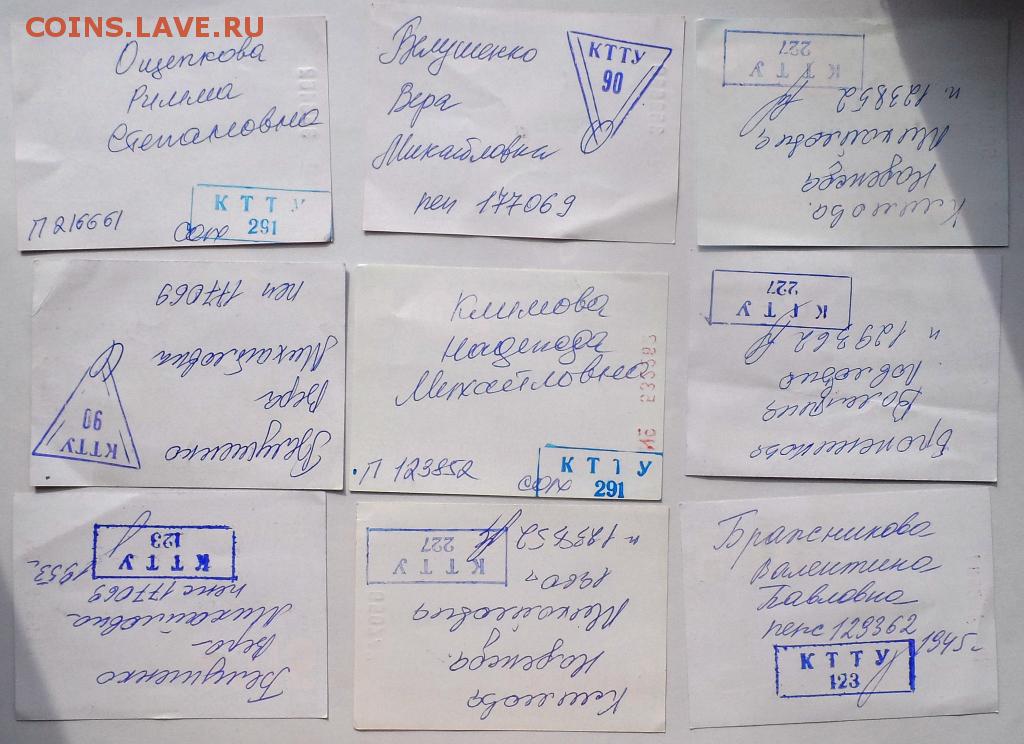 COINS.LAVE.RU
Ощепкова
Римма
Степановна
П 216661
КТТУ
291
Белушенко
Вера
Михайловна
пен 177069
КТТУ
90
Климова
Надежда
Михайловна
п. 123852
КТТУ
227
Белушенко
Вера
Михайловна
пен 177069
КТТУ
90
Климова
Надежда
Михайловна
П 123852
КТТУ
291
Валентина
Павловна
п 129362
КТТУ
227
Белушенко
Вера
Михайловна
пенс 177069
1953г
КТТУ
123
Климова
Надежда
Михайловна
1960г
п 123852
КТТУ
227
Бражникова
Валентина
Павловна
пенс 129362
1945г
КТТУ
123